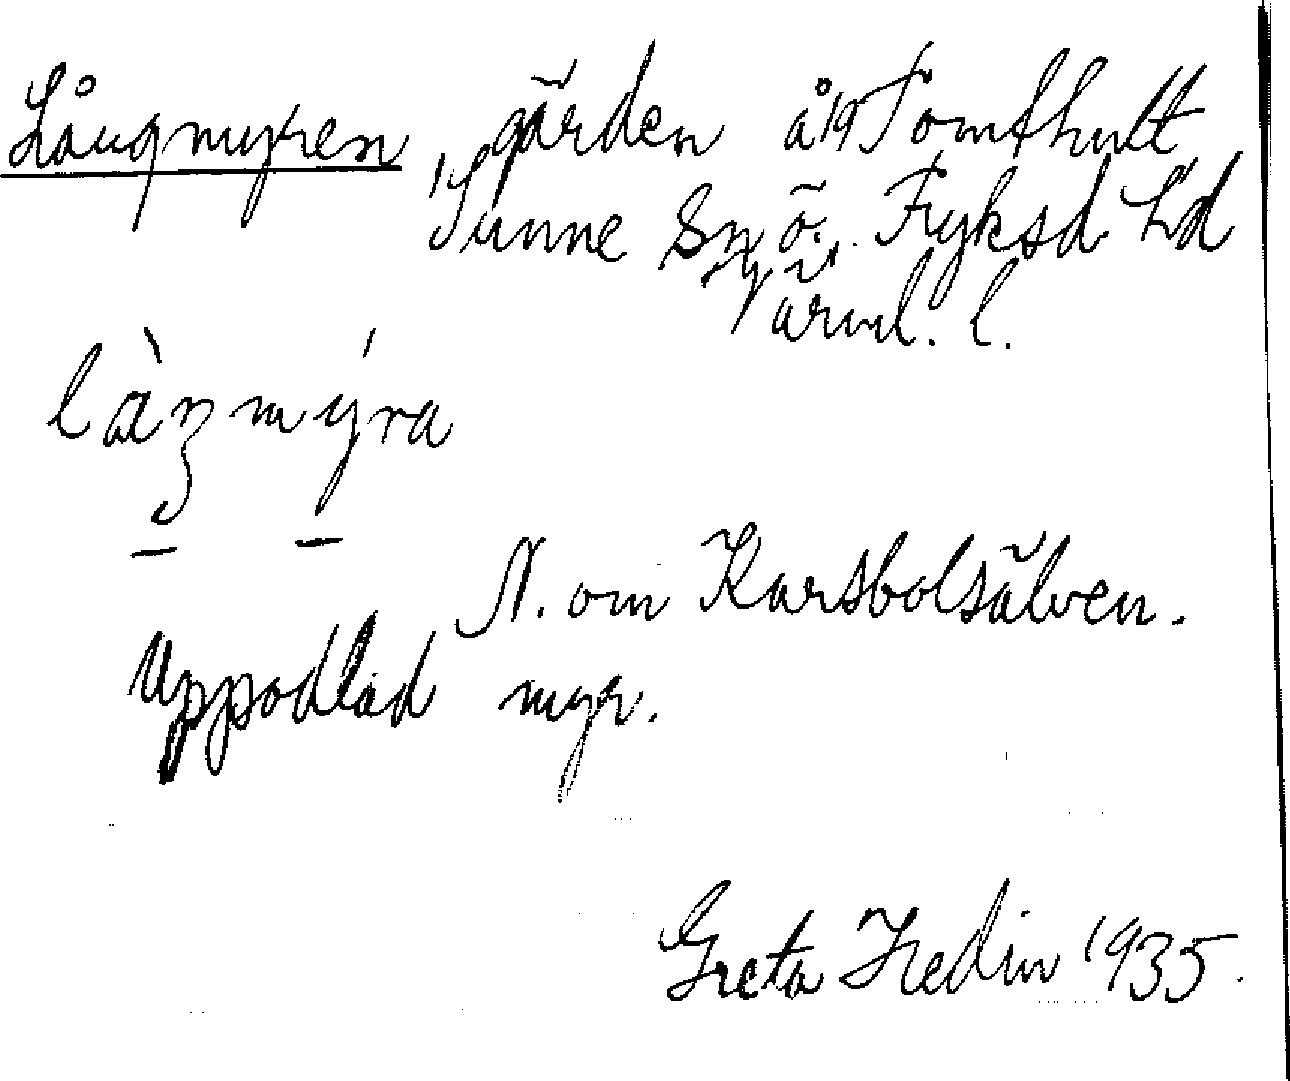 Långmyren, gärden å 1/9 Tomthult
Sunne Sn Fryksd hd
Värml. l.
làŋmýra
N. om Karsbolsälven.
Uppodlad myr.
Greta Hedin 1935.